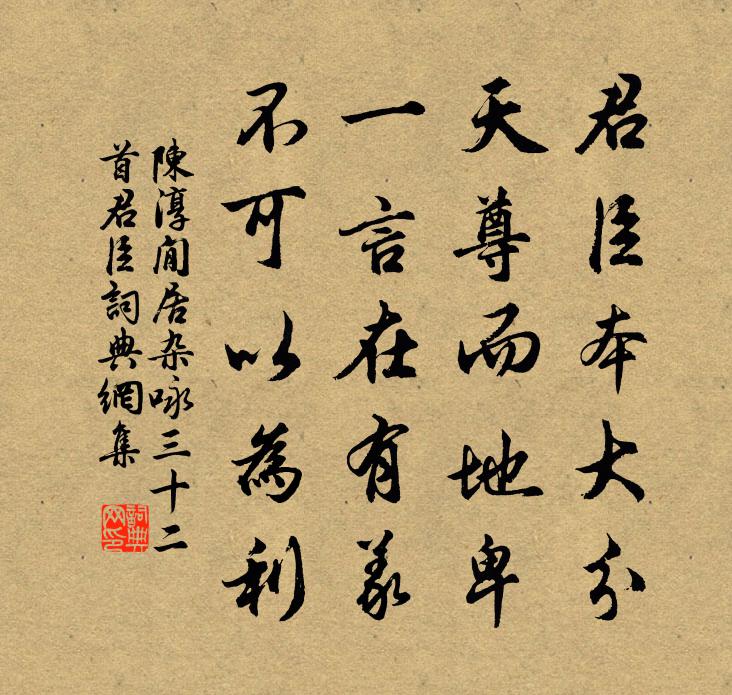 君臣本大分
天尊而地卑
一言在有義
不可以為利
陳淳閒居杂咏三十二
首君臣詞典網集
詞典网印